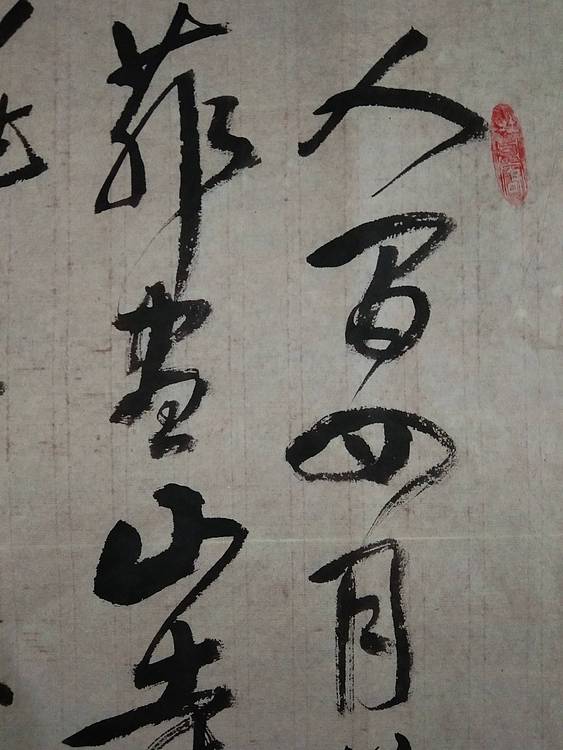 人間四月
菲盡山寺